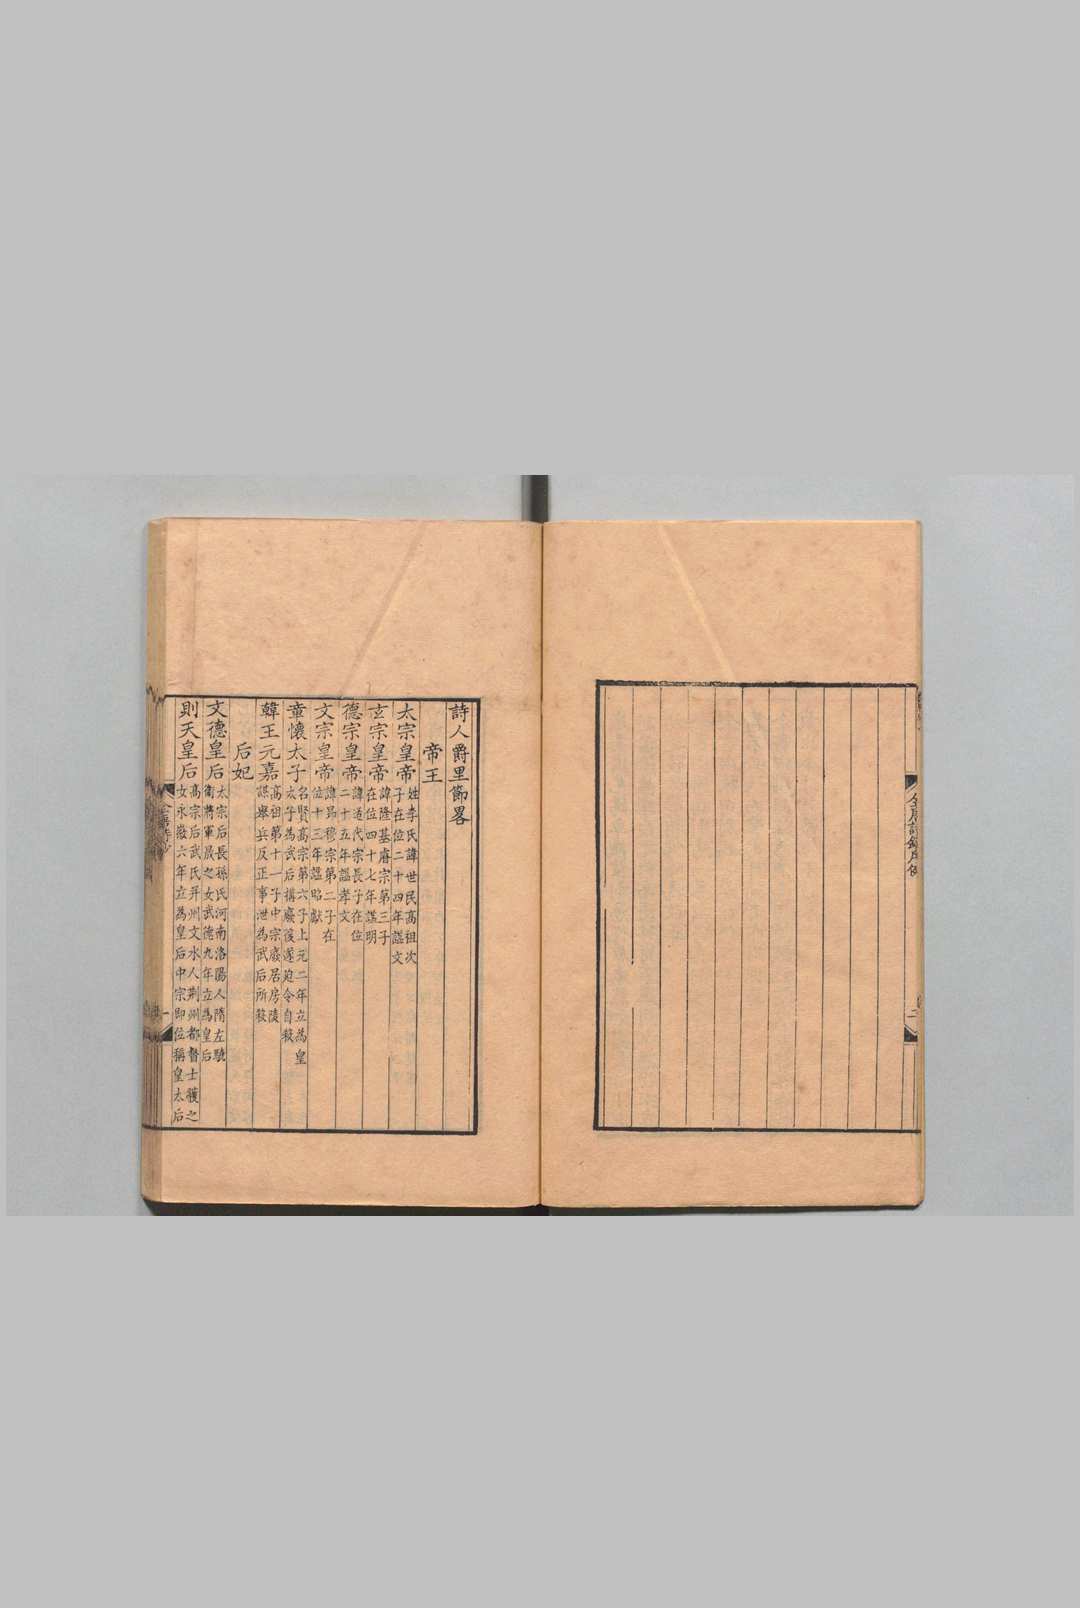 詩人爵里節畧
帝王
太宗皇帝 姓李氏諱世民高祖次
子在位二十四年諡文
玄宗皇帝 諱隆基睿宗第三子
在位四十七年諡明
德宗皇帝 諱适代宗長子在位
二十五年諡孝文
文宗皇帝 諱昻穆宗第二子在
位十三年諡昭獻
章懷太子 名賢高宗第六子上元二年立為皇
太子為武后搆廢後遂廹令自殺
韓王元嘉 高祖第十一子中宗廢居房陵
謀舉兵反正事泄為武后所殺
后妃
文德皇后 太宗后長孫氏河南洛陽人隋左驍
衛將軍晟之女武德九年立為皇后
則天皇后 高宗后武氏并州文水人荆州都督士彠之
女永徽六年立為皇后中宗即位稱皇太后